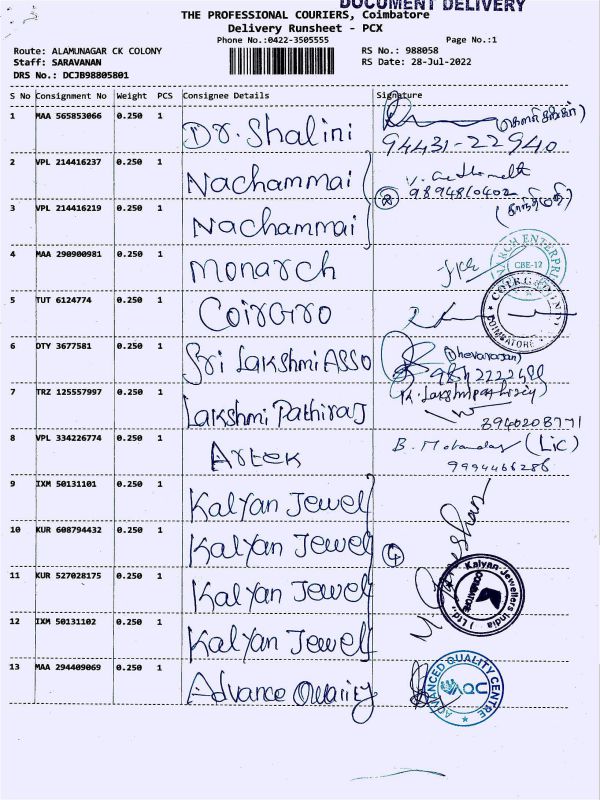 DOCUMENT DELIVERY
THE PROFESSIONAL COURIERS, Coimbatore
Delivery Runsheet - PCX
Phone No.:0422-3505555 Page No.:1
Route: ALAMUNAGAR CK COLONY RS No.: 988058
Staff: SARAVANAN RS Date: 28-Jul-2022
DRS No.: DCJB98805801
S No Consignment No Weight PCS Consignee Details Signature
1 MAA 565853066 0.250 1 Dr. Shalini
94431-22940
2 VPL 214416237 0.250 1 Nachammai
9894810402
3 VPL 214416219 0.250 1 Nachammai
2
4 MAA 290900981 0.250 1 Monarch
CBE-12
5 TUT 6124774 0.250 1 CoirGro
COIMBATORE
6 DTY 3677581 0.250 1 Sri Lakshmi ASSO
(Dhevarajan)
7 TRZ 125557997 0.250 1 Lakshmi Pathiraj
8940208771
8 VPL 334226774 0.250 1 Artek
(Lic)
9994466286
9 IXM 50131101 0.250 1 Kalyan Jewel
10 KUR 608794432 0.250 1 Kalyan Jewel
4
11 KUR 527028175 0.250 1 Kalyan Jewel
Kalyan Jewellers India Ltd.,
COIMBATORE
12 IXM 50131102 0.250 1 Kalyan Jewel
13 MAA 294409069 0.250 1 Advance Quality
ADVANCED QUALITY CENTRE
AQC